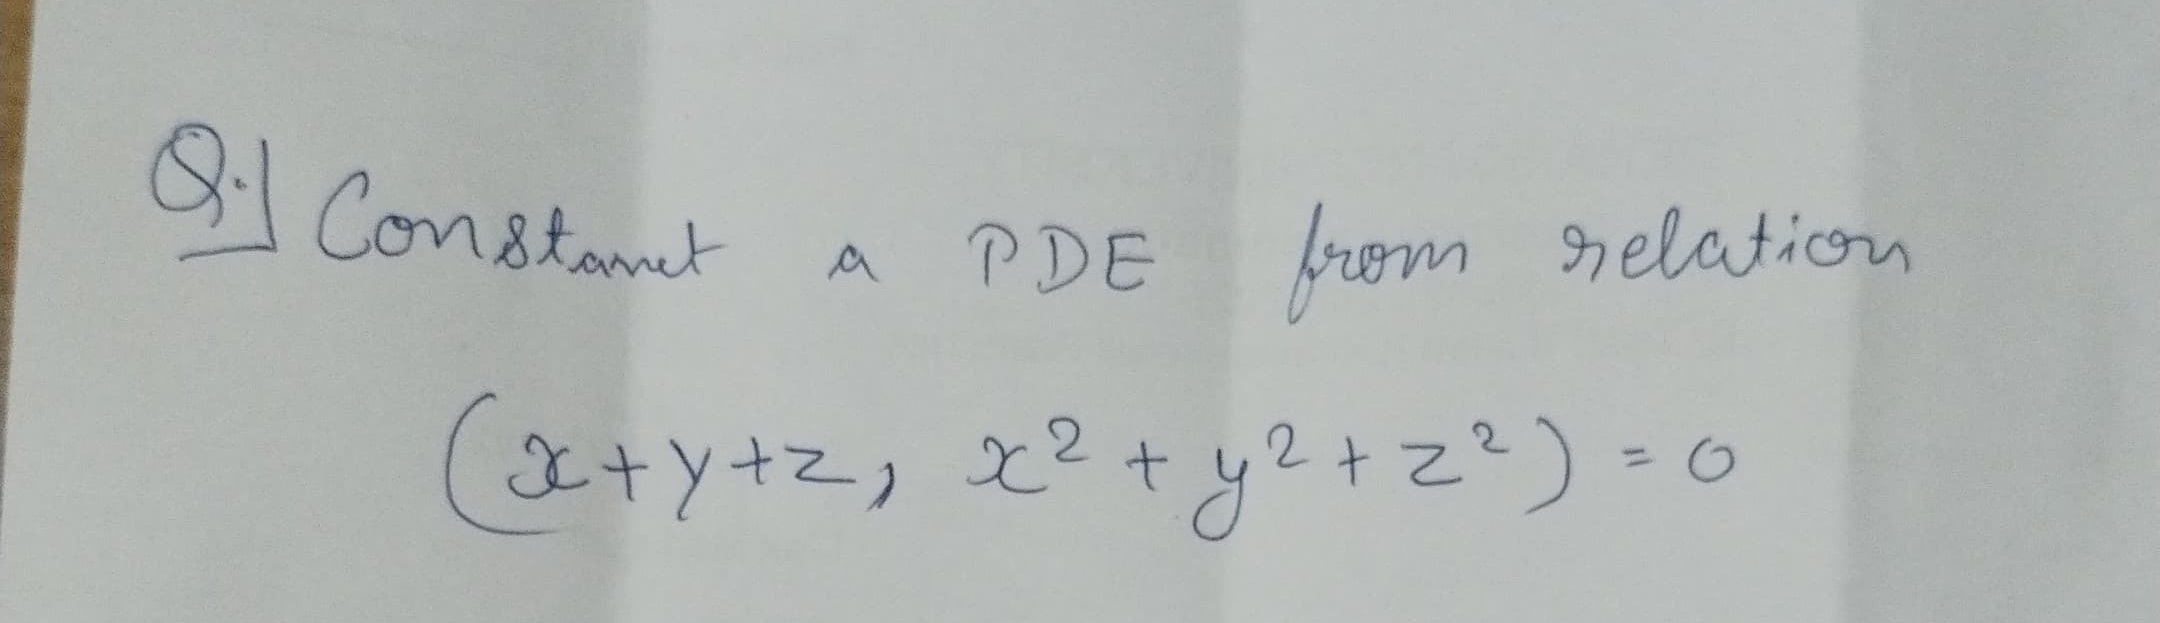 Q.1 Constanct a PDE from relation
(x+y+z, x² + y² + z²) = 0